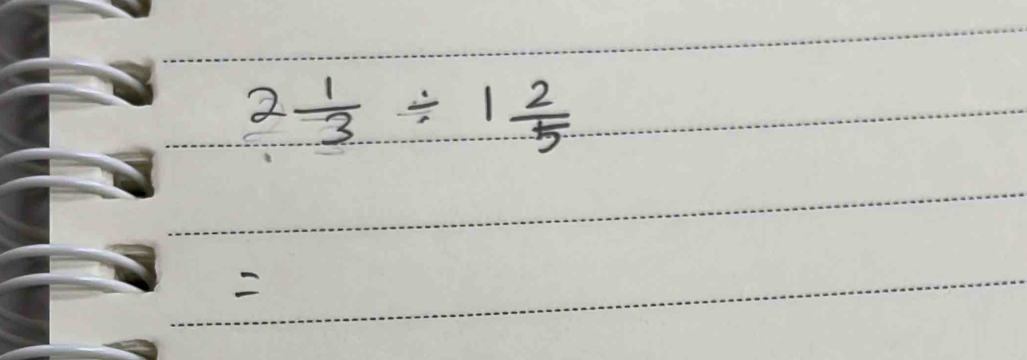 2 1/3 ÷ 1 2/5
=